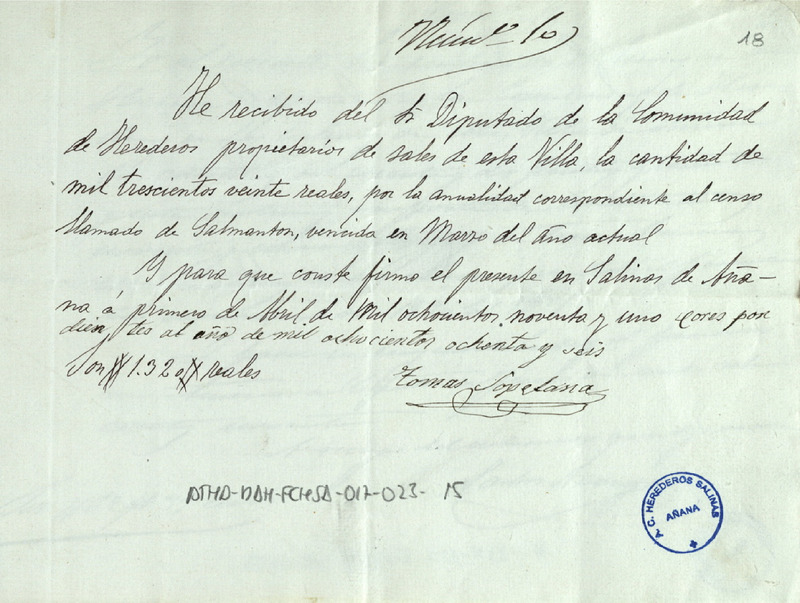 Núm.º 10
18
He recibido del Sr Diputado de la Comunidad
de Herederos propietarios de sales de esta Villa, la cantidad de
mil trescientos veinte reales, por la anualidad correspondiente al censo
llamado de Salmanton, vencida en Marzo del año actual
Y para que conste firmo el presente en Salinas de Aña-
na á primero de Abril de mil ochocientos noventa y uno cores pon
dien tes al año de mil ochocientos ochenta y seis
Son # 1.320 # reales
Tomas
ATHA-DAH-FCHSA-017-023- 15
A. C. HEREDEROS SALINAS
AÑANA